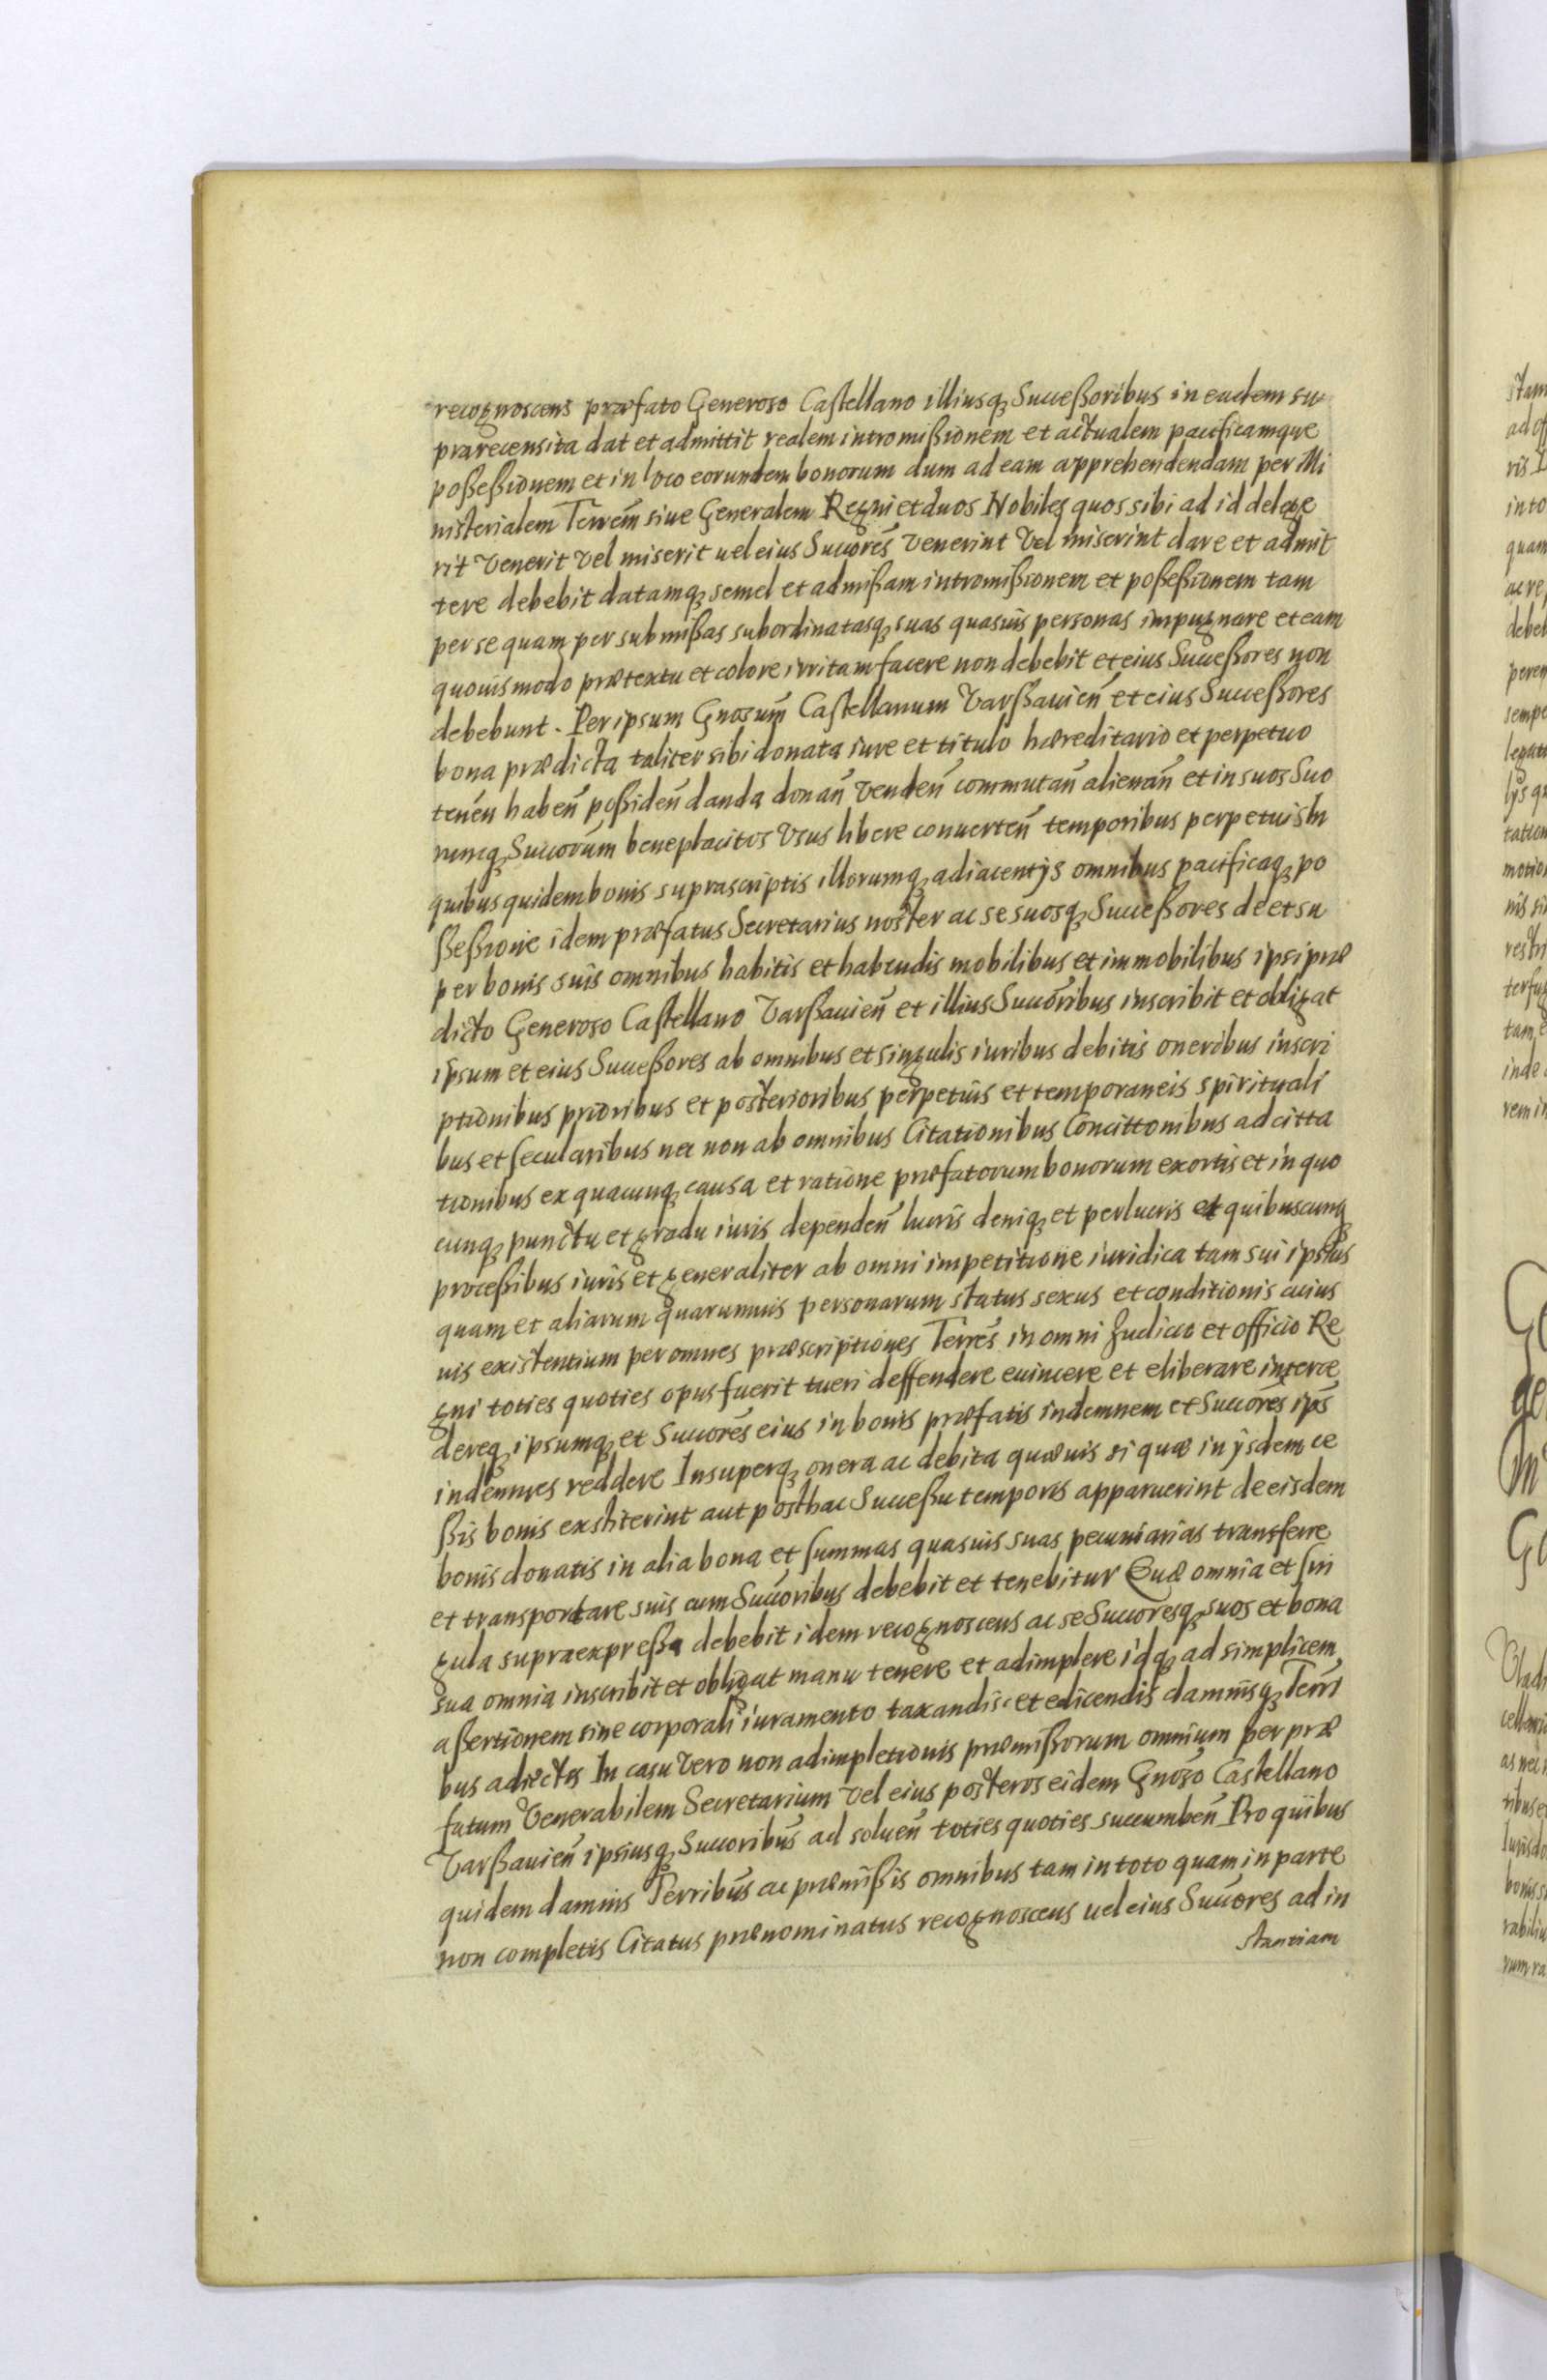 recognoscens præfato Generoso Castellano illiusq; Succeßoribus in eadem su
prærecensita dat et admittit realem intromißionem et actualem pacificamque
poßeßionem et in loco eorundem bonorum dum ad eam apprehendendam per Mi
nisterialem Terrem̃ siue Generalem Regni et duos Nobiles quos sibi ad id delege
rit Venerit Vel miserit uel eius Succoreś Venerint Vel miserint dare et admit
tere debebit datamq; semel et admißam intromißionem et poßeßionem tam
per se quam per submißas subordinatasq; suas quasuis personas impugnare et eam
quouismodo prætextu et colore irritam facere non debebit et eius Succeßores non
debebunt. Per ipsum Gnosum̃ Castellanum Varßauien̄ et eius Succeßores
bona prædicta taliter sibi donata iure et titulo hæreditario et perpetuo
tenen̄ haben̄ poßiden̄ danda donan̄ Venden̄ commutan̄ alienan̄ et in suos Suo
rumq; Succorum̃ beneplacitos Vsus libere conuerten̄ temporibus perpetuis In
quibus quidem bonis suprascriptis illorumq; adiacentÿs omnibus pacificaq; po
ßeßione idem præfatus Secretarius noster ac se suosq; Succeßores de et su
per bonis suis omnibus habitis et habendis mobilibus et immobilibus ipsi præ
dicto Generoso Castellano Varßauien̄ et illius Succoribus inscribit et obligat
ipsum et eius Succeßores ab omnibus et singulis iuribus debitis oneribus inscri
ptionibus prioribus et posterioribus perpetuis et temporaneis spirituali
bus et secularibus nec non ab omnibus Citationibus Concittonibus ad citta
tionibus ex quacunq; causa et ratione præfatorum bonorum exortis et in quo
cunq; punctu et gradu iuris dependen̄ lucris deniq; et perlucris et quibuscunq;
proceßibus iuris et generaliter ab omni impetitione iuridica tam sui ipsius
quam et aliarum quarumuis personarum status sexus et conditionis cuius
uis existentium per omnes præscriptiones Terres̃ in omni Judicio et officio Re
gni toties quoties opus fuerit tueri deffendere euincere et eliberare interce
dereq; ipsumq; et Succoreś eius in bonis præfatis indemnem et Succoreś ips̃
indemnes reddere Insuperq; onera ac debita quæuis si quæ in ÿsdem ce
ßis bonis exstiterint aut posthac Succeßu temporis apparuerint de eisdem
bonis donatis in alia bona et summas quasuis suas pecuniarias transferre
et transportare suis cum Succoribus debebit et tenebitur Quæ omnia et sin
gula supraexpreßa debebit idem recognoscens ac se Succoresq; suos et bona
sua omnia inscribit et obligat manu tenere et adimplere idq; ad simplicem
aßertionem sine corporali iuramento taxandis et edicendis damnisq; Terri
bus adiectis In casu Vero non adimpletionis præmißorum omnium per præ
fatum Venerabilem Secretarium Vel eius posteros eidem Gnoso Castellano
Varßauien̄ ipsiusq; Succoribus ad soluen̄ toties quoties succumben̄ Pro quibus
quidem damnis Terribus ac præmißis omnibus tam in toto quam in parte
non completis Citatus prænominatus recognoscens uel eius Succores ad in
stantiam